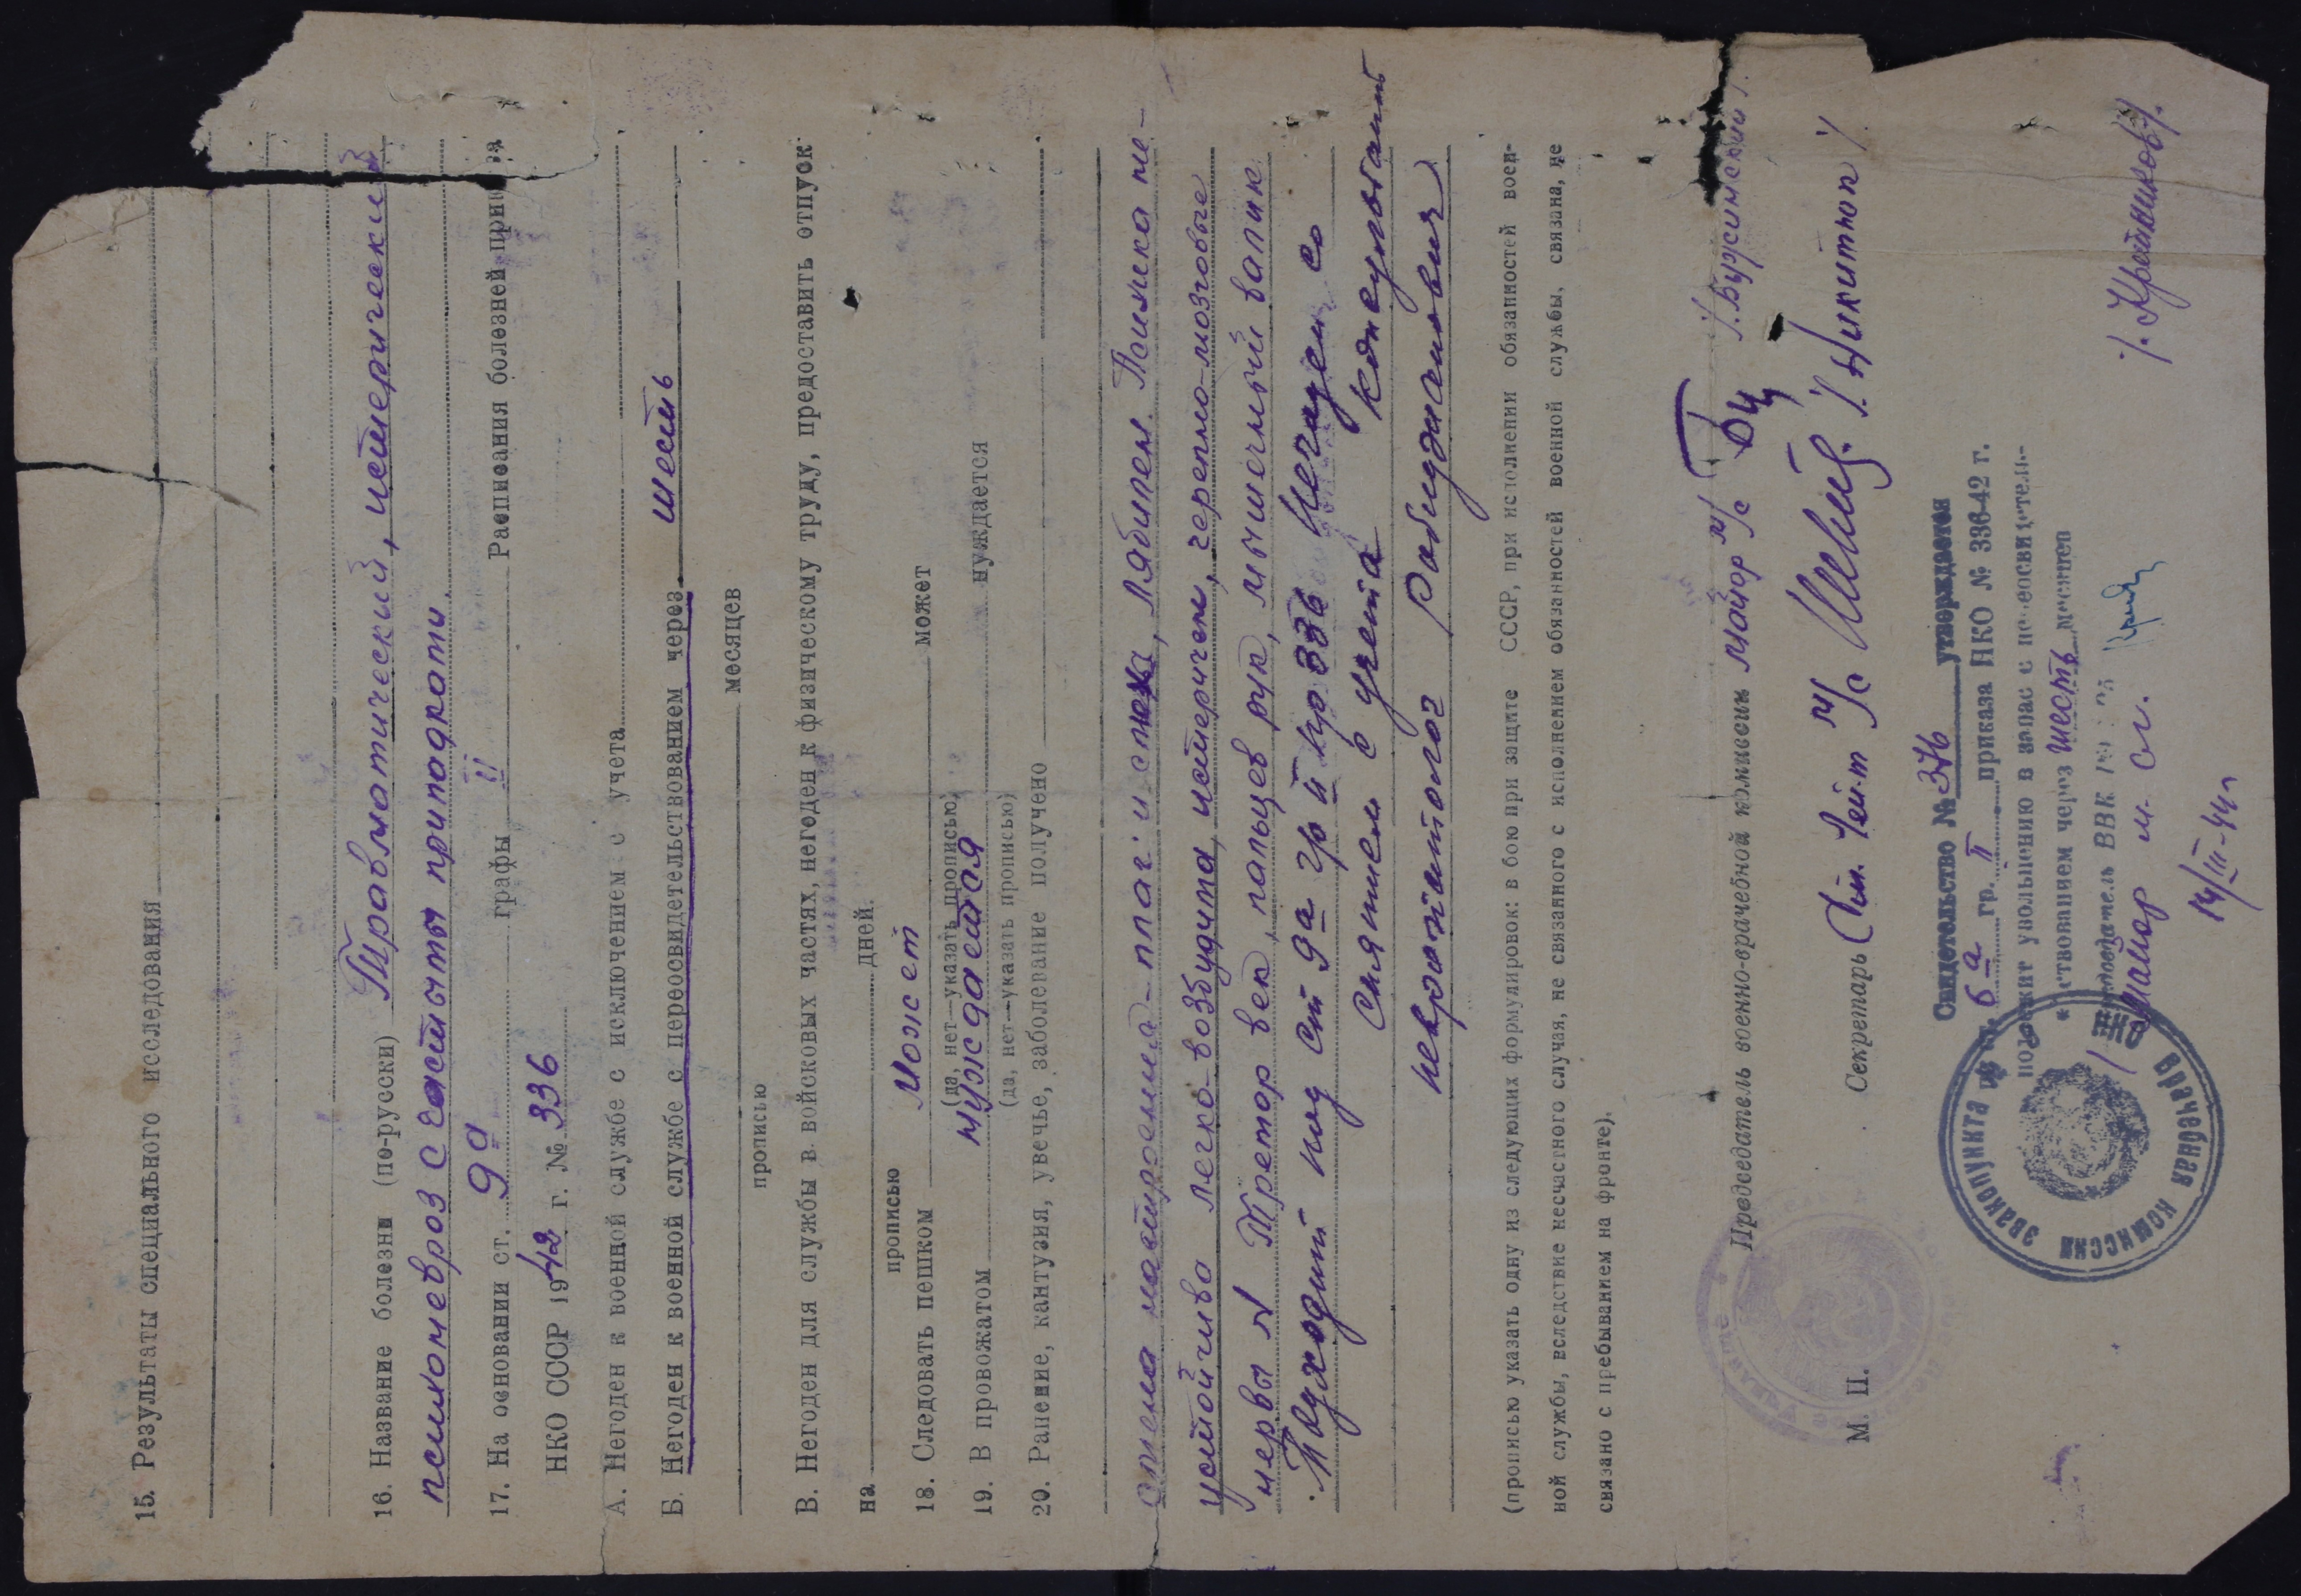 15. Результаты специального исследования
16. Название болезни (по-русски) Травматический, истерический
психоневроз с частыми припадками.
17. На основании ст. 9а графы II Расписания болезней приказа
НКО СССР 1942 г. № 336
А. Негоден к военной службе с исключением с учета
Б. Негоден к военной службе с переосвидетельствованием через шесть
прописью месяцев
В. Негоден для службы в войсковых частях, негоден к физическому труду, предоставить отпуск
на дней.
прописью
18. Следовать пешком Может может
(да, нет—указать прописью)
19. В провожатом нуждается нуждается
(да, нет—указать прописью)
20. Ранение, кантузия, увечье, заболевание получено
лябилен. Психика не-
устойчива легко-возбудима, истеричен, черепно-мозговые
нервы N Тремор век, пальцев рук, мышечный валик
Подходит под ст 9а гр II пр 336
снятием с учета Консультант
невропатолог
(прописью указать одну из следующих формулировок: в бою при защите СССР, при исполнении обязанностей воен-
ной службы, вследствие несчастного случая, не связанного с исполнением обязанностей военной службы, связана, не
связано с пребыванием на фронте).
Председатель военно-врачебной комиссии майор м/с
Секретарь лей-т м/с /Никитюк/
М. П.
Свидетельство № 376 утверждается
по ст. 6а гр. II приказа НКО № 336-42 г.
подлежит увольнению в запас с переосвидетель-
ствованием через шесть месяцев
Председатель ВВК
майор м. сл.
14/III-44г
эвакопункта
врачебная комиссия